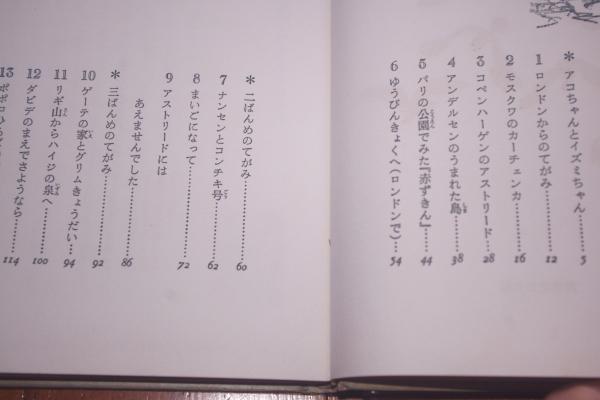 * アコちゃんとイズミちゃん……… 5
1 ロンドンからのてがみ……… 12
2 モスクワのカーチェンカ……… 16
3 コペンハーゲンのアストリード…… 28
4 アンデルセンのうまれた島……… 38
5 パリの公園でみた『赤ずきん』…… 44
6 ゆうびんきょくへ(ロンドンで)… 54
* 二ばんめのてがみ……… 60
7 ナンセンとコンチキ号……… 62
8 まいごになって……… 72
9 アストリードには
あえませんでした……… 86
* 三ばんめのてがみ……… 92
10 ゲーテの家とグリムきょうだい… 94
11 リギ山からハイジの泉へ……… 100
12 ダビデのまえでさようなら…… 114
13